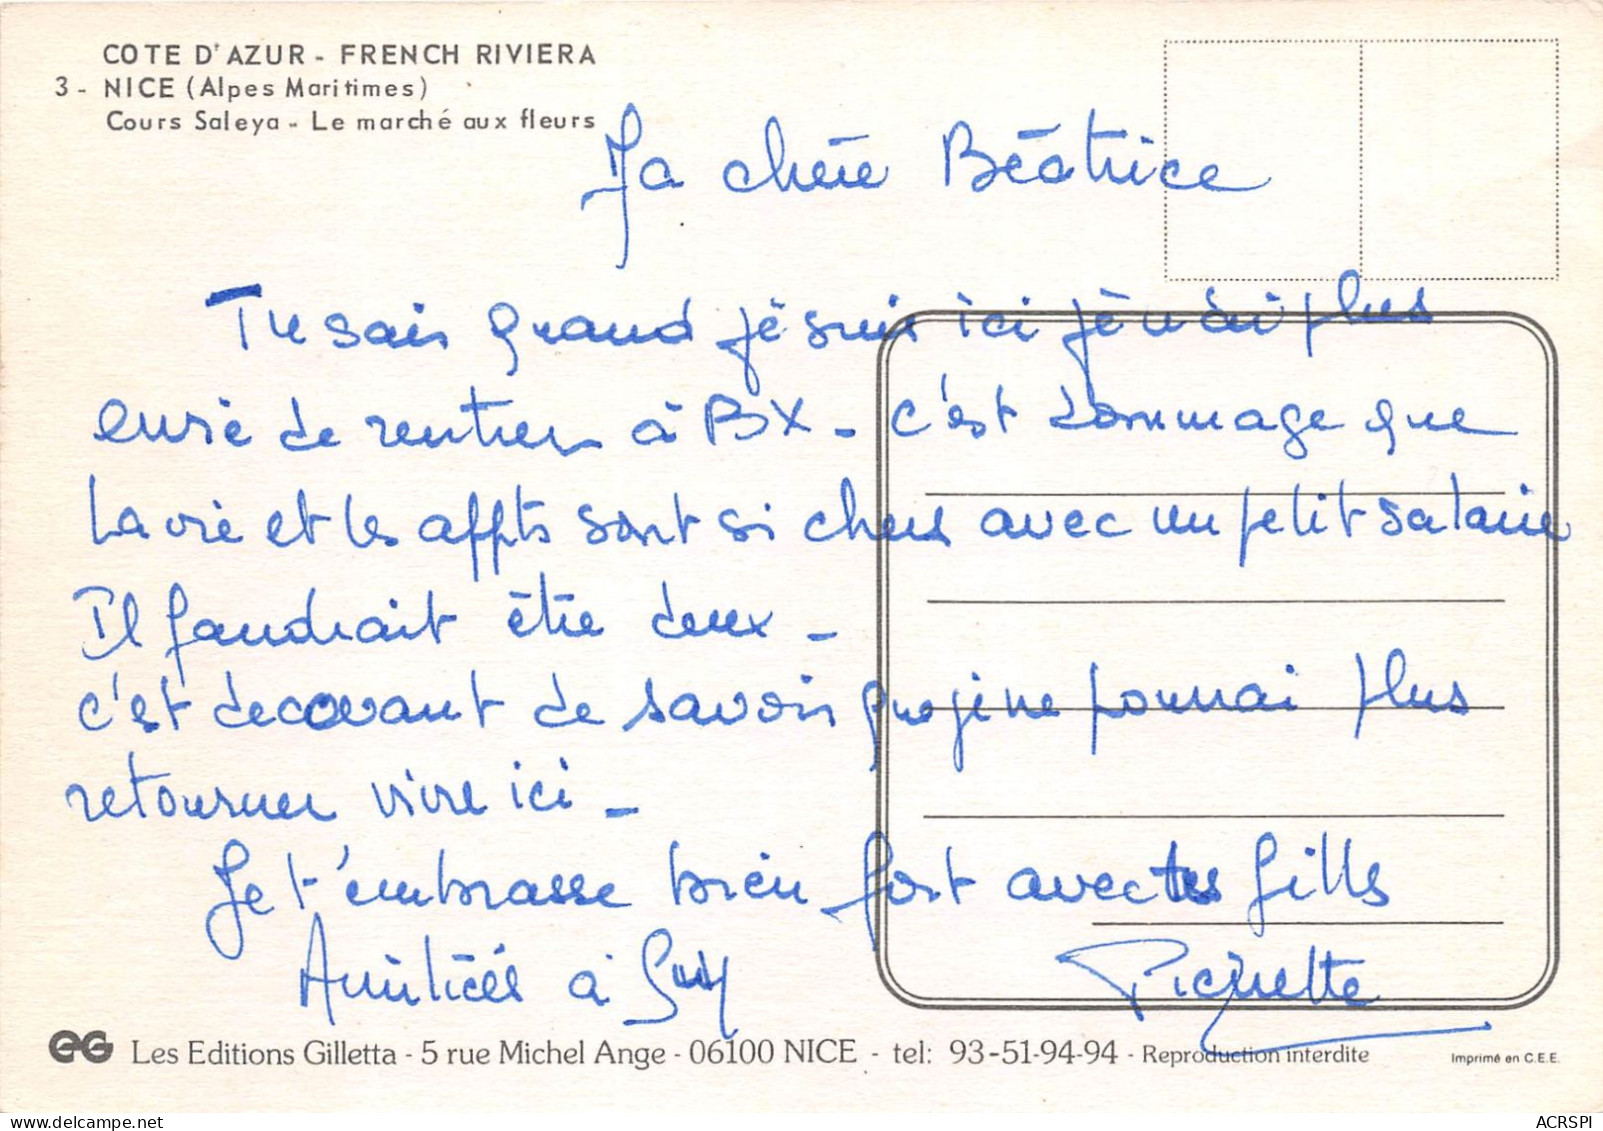 COTE D'AZUR - FRENCH RIVIERA
3 - NICE (Alpes Maritimes)
Cours Saleya - Le marché aux fleurs
Ma chère Béatrice
Tu sais quand je suis ici je n'ai plus
envie de rentrer à BX - c'est dommage que
la vie et les appts sont si chers avec un petit salaire
Il faudrait être deux -
c'est decevant de savoir que je ne pourrai plus
retourner vivre ici -
Je t'embrasse bien fort avec tes filles
Amitiés à Guy
EG Les Editions Gilletta - 5 rue Michel Ange - 06100 NICE - tel: 93-51-94-94 - Reproduction interdite
Imprimé en C.E.E.
ACRSPI